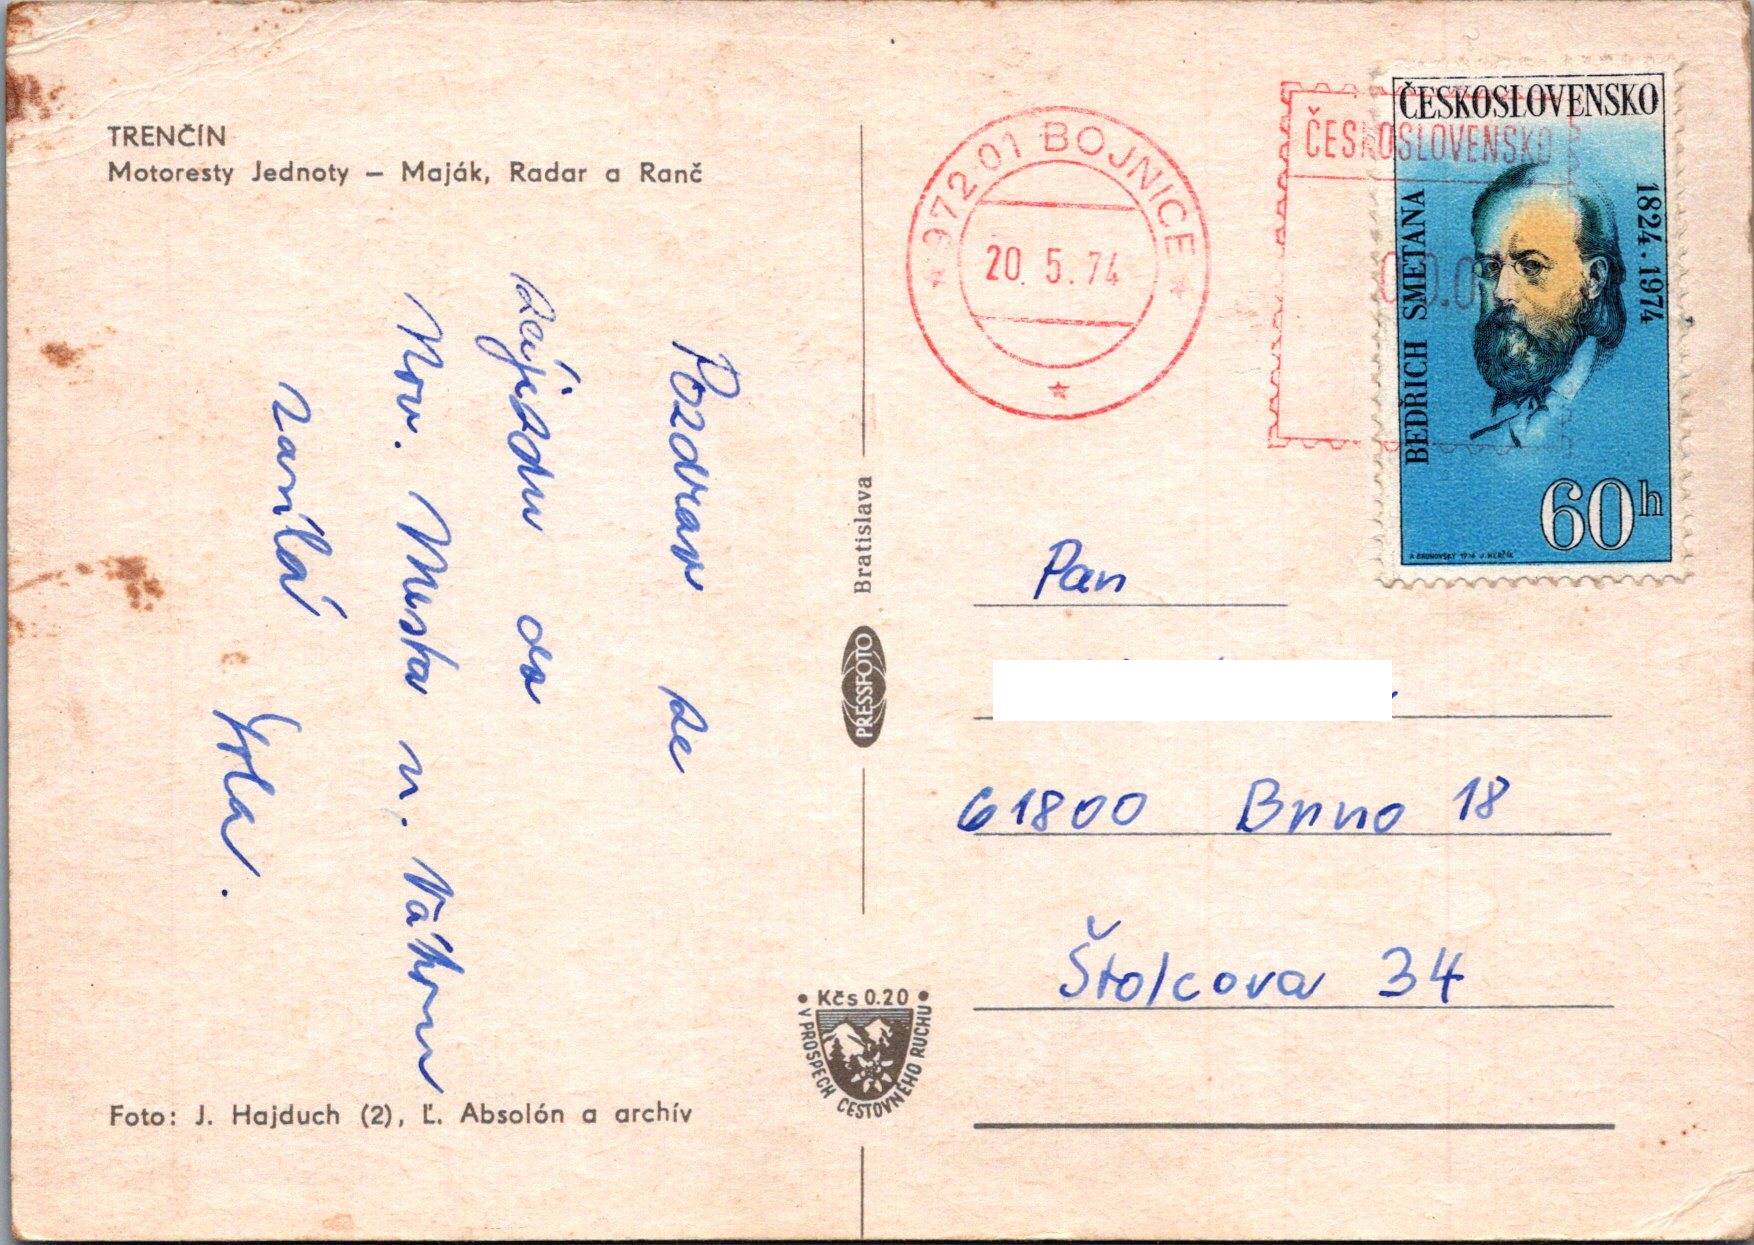 TRENČÍN
Motoresty Jednoty – Maják, Radar a Ranč
Pozdrav ze
zájezdu do
Nov. Mesta n. Váhom
zasílá
Foto: J. Hajduch (2), Ľ. Absolón a archív
PRESSFOTO Bratislava
• Kčs 0.20 •
V PROSPECH CESTOVNÉHO RUCHU
972 01 BOJNICE
20. 5. 74
ČESKOSLOVENSKO
ČESKOSLOVENSKO
BEDŘICH SMETANA
1824 . 1974
60h
Pan
61800 Brno 18
Štolcova 34